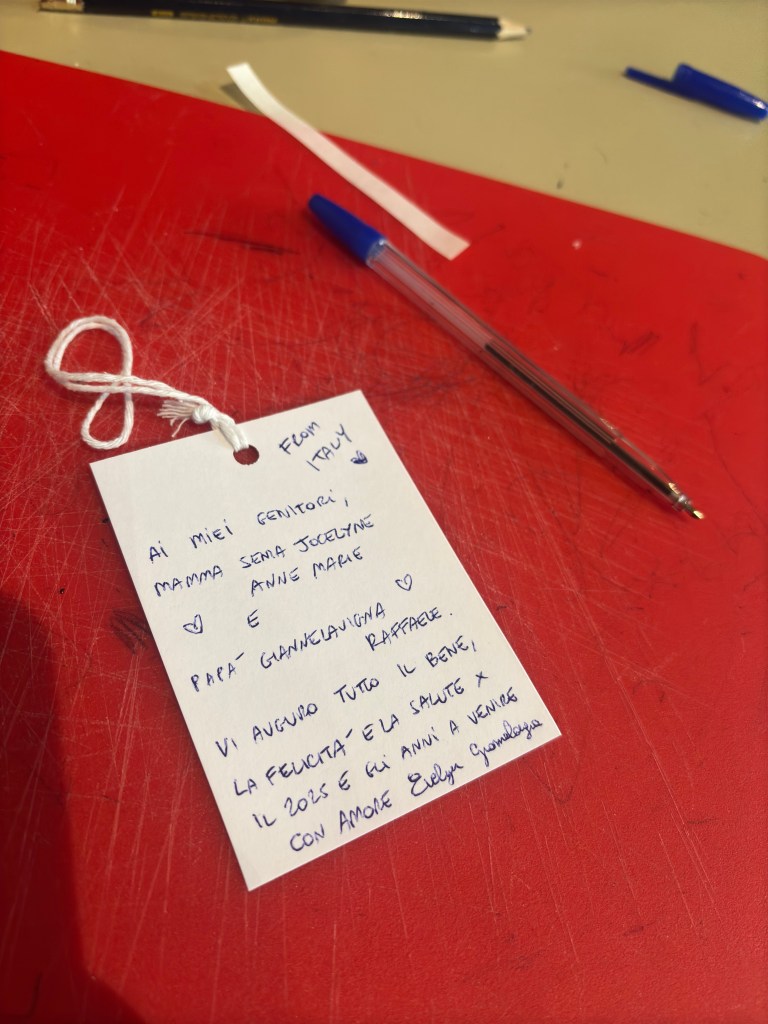 FROM
ITALY
AI MIEI GENITORI,
MAMMA SEMA JOCELYNE
ANNE MARIE
E
PAPA' GIANNELAVIGNA
RAFFAELE.
VI AUGURO TUTTO IL BENE,
LA FELICITA' E LA SALUTE X
IL 2025 E GLI ANNI A VENIRE
CON AMORE Evelyn